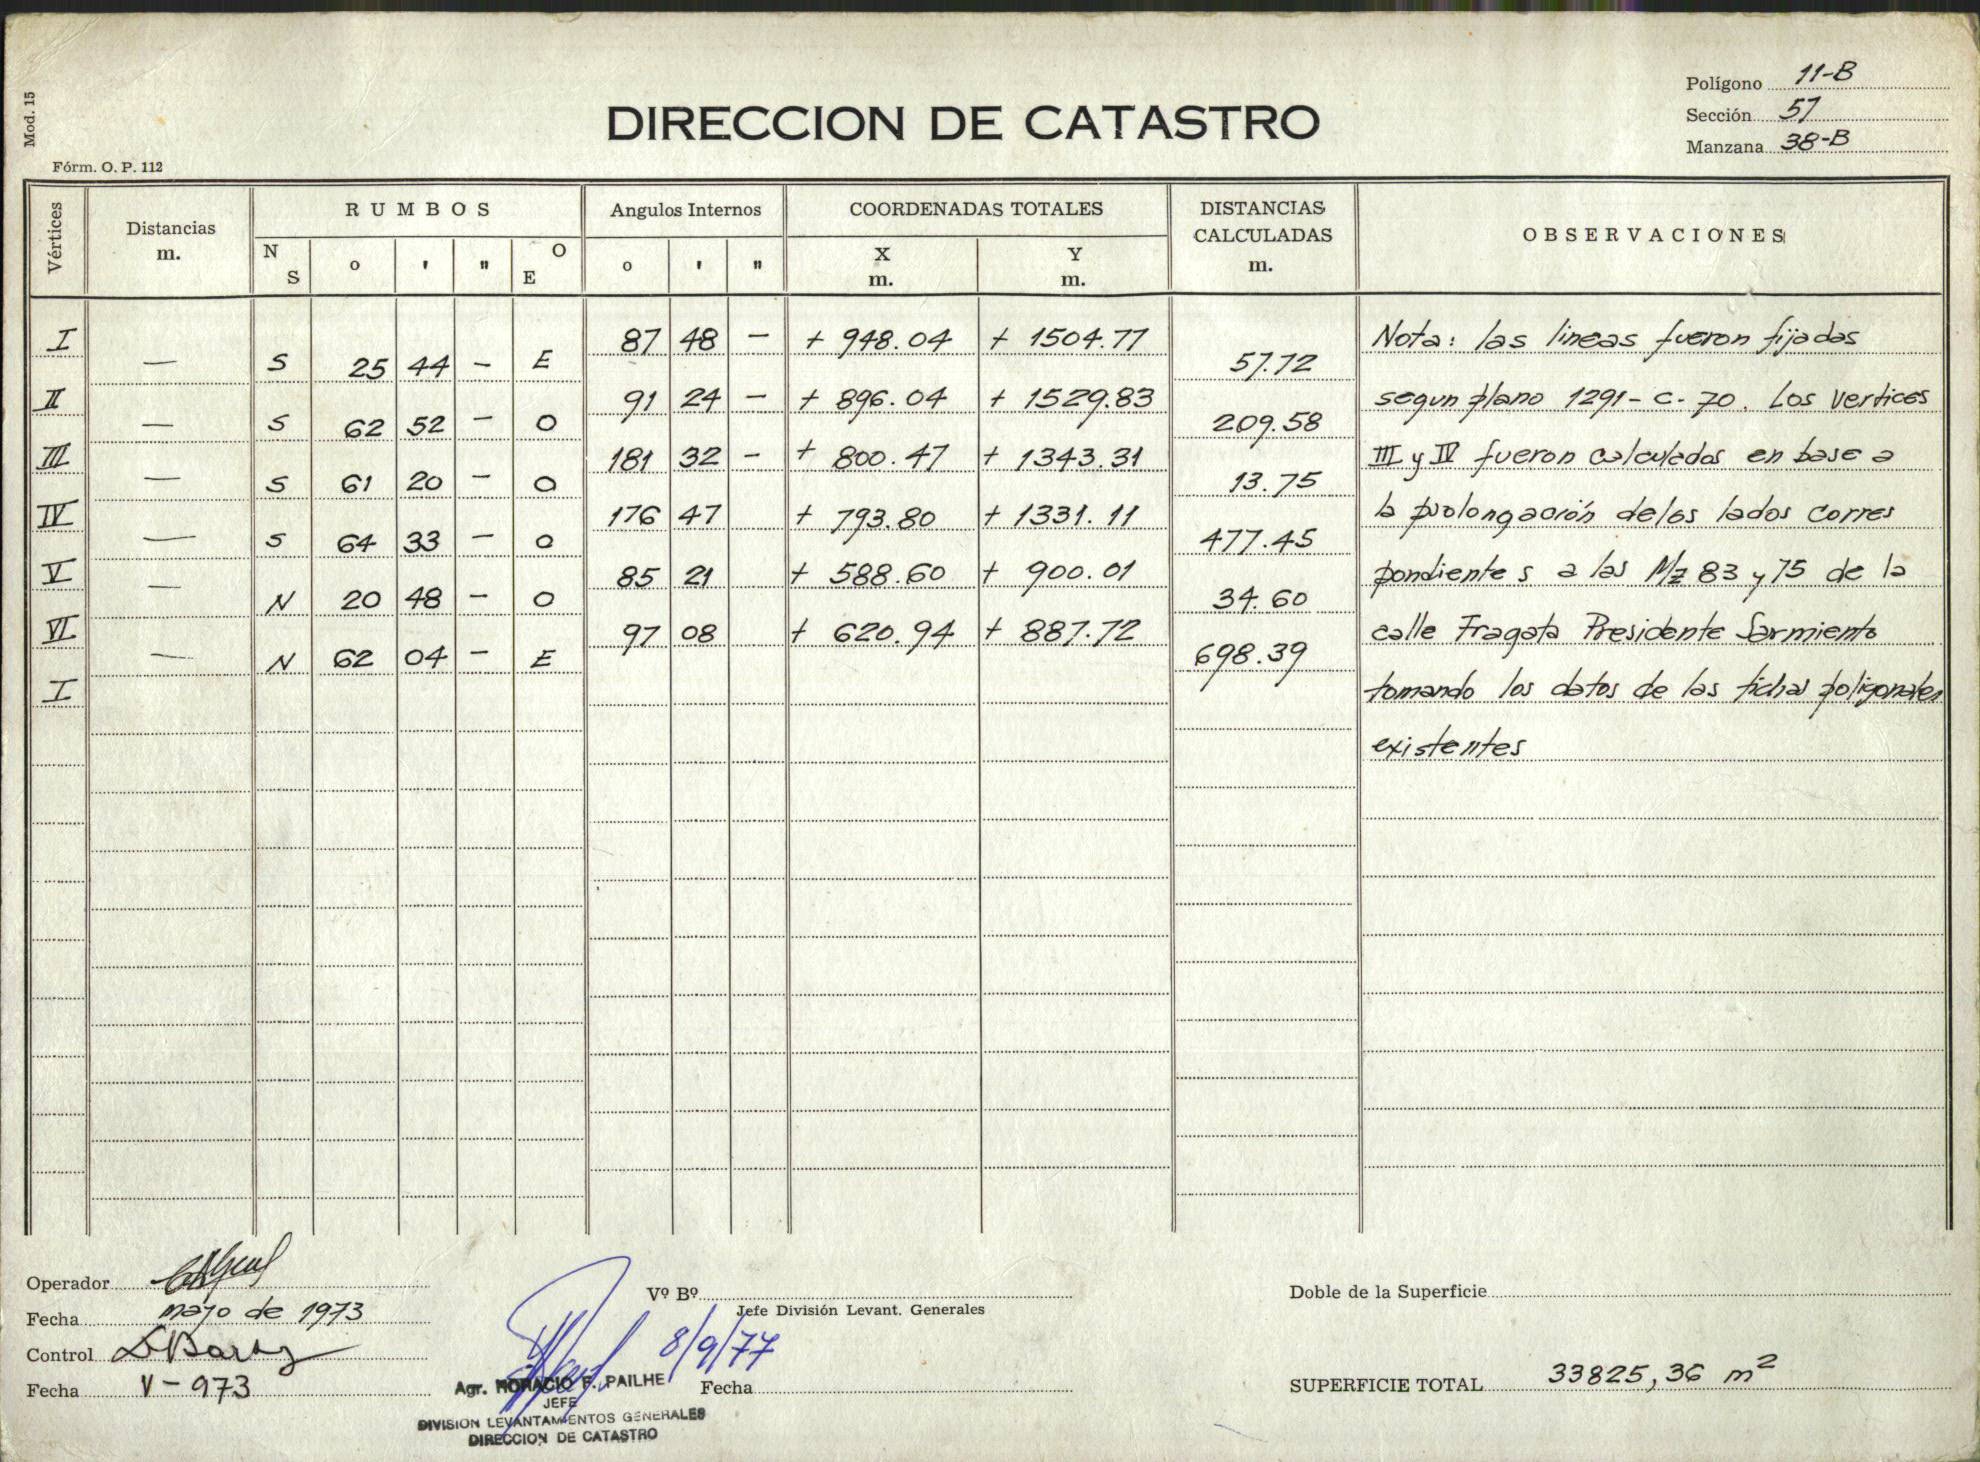 Mod. 15
Fórm. O. P. 112
DIRECCION DE CATASTRO
Polígono 11-B
Sección 57
Manzana 38-B
Vértices
Distancias m.
RUMBOS
N S
o
'
"
O E
Angulos Internos
o
'
"
COORDENADAS TOTALES
X m.
Y m.
DISTANCIAS CALCULADAS m.
OBSERVACIONES
I 87 48 — + 948.04 + 1504.77
— S 25 44 — E 57.72
II 91 24 — + 896.04 + 1529.83
— S 62 52 — O 209.58
III 181 32 — + 800.47 + 1343.31
— S 61 20 — O 13.75
IV 176 47 + 793.80 + 1331.11
— S 64 33 — O 477.45
V 85 21 + 588.60 + 900.01
— N 20 48 — O 34.60
VI 97 08 + 620.94 + 887.72
— N 62 04 — E 698.39
I
Nota: las lineas fueron fijadas
segun plano 1291-C-70. Los vertices
III y IV fueron calculados en base a
la prolongación de los lados corres
pondientes a las Mz 83 y 75 de la
calle Fragata Presidente Sarmiento
tomando los datos de las fichas poligonales
existentes
Operador
Fecha mayo de 1973
Control
Fecha V-973
Vº Bº
Jefe División Levant. Generales
8/9/77
Agr. HORACIO F. PAILHE
JEFE
DIVISION LEVANTAMIENTOS GENERALES
DIRECCION DE CATASTRO
Fecha
Doble de la Superficie
SUPERFICIE TOTAL 33825,36 m²